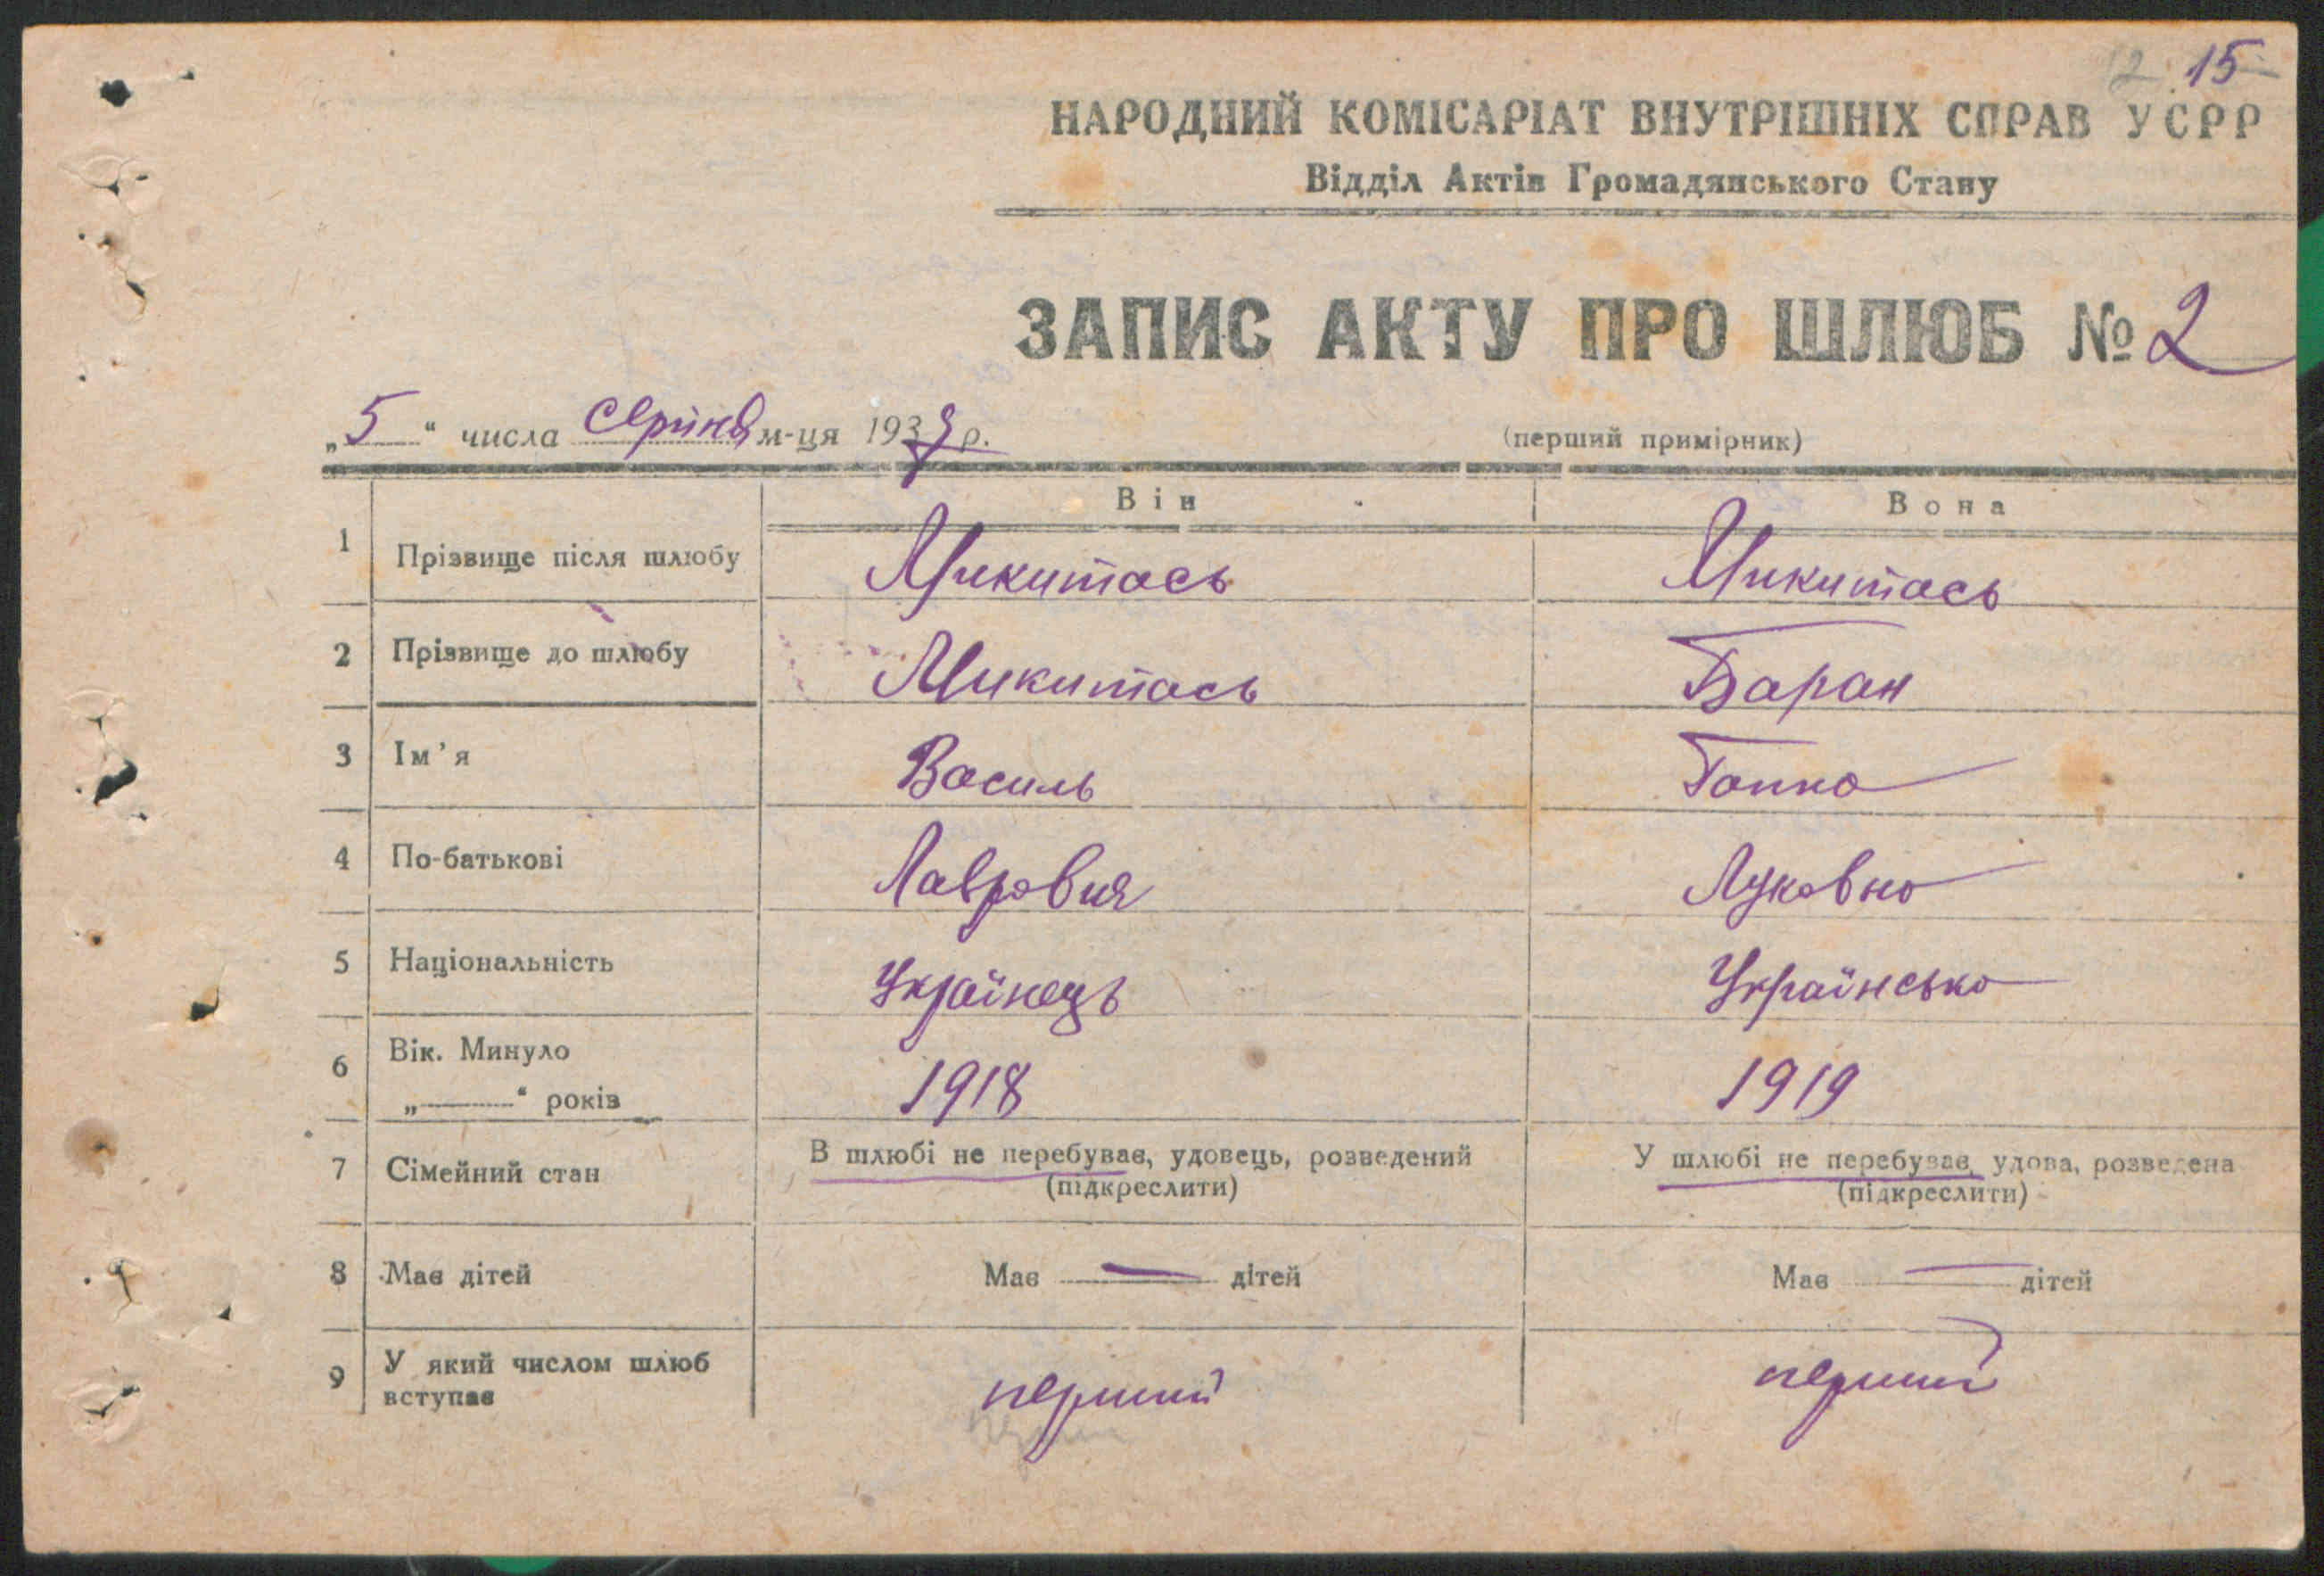 12 15
НАРОДНИЙ КОМІСАРІАТ ВНУТРІШНІХ СПРАВ УСРР
Відділ Актів Громадянського Стану
ЗАПИС АКТУ ПРО ШЛЮБ № 2
„5“ числа серпня м-ця 1939 р.
(перший примірник)
Він Вона
1 Прізвище після шлюбу Микитась Микитась
2 Прізвище до шлюбу Микитась Баран
3 Ім'я Василь Гапка
4 По-батькові Лаврович Луковна
5 Національність Українець Українська
6 Вік. Минуло
„ “ років 1918 1919
7 Сімейний стан В шлюбі не перебував, удовець, розведений У шлюбі не перебуває, удова, розведена
(підкреслити) (підкреслити)
8 Має дітей Має — дітей Має — дітей
9 У який числом шлюб
вступає перший перший